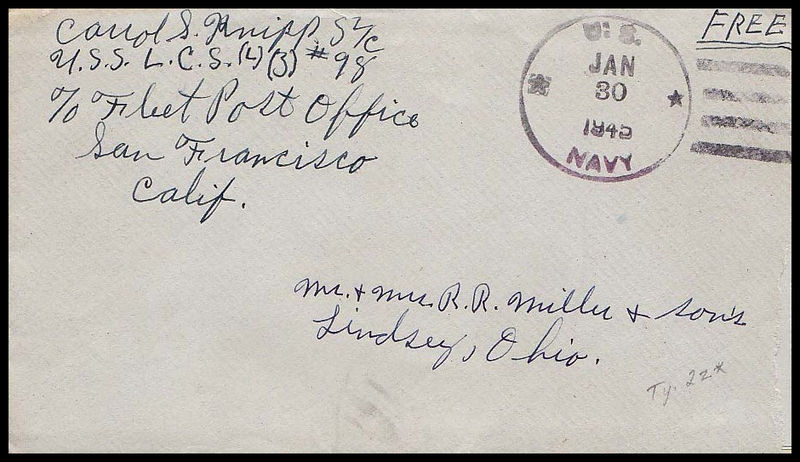 Carrol S. Knipp S 1/c
U.S.S. L.C.S. (L) (3) #98
c/o Fleet Post Office
San Francisco
Calif.
U.S.
JAN
30
1945
NAVY
FREE
Mr. + Mrs. R. R. Miller + Sons
Lindsey, Ohio.
Ty. 22*